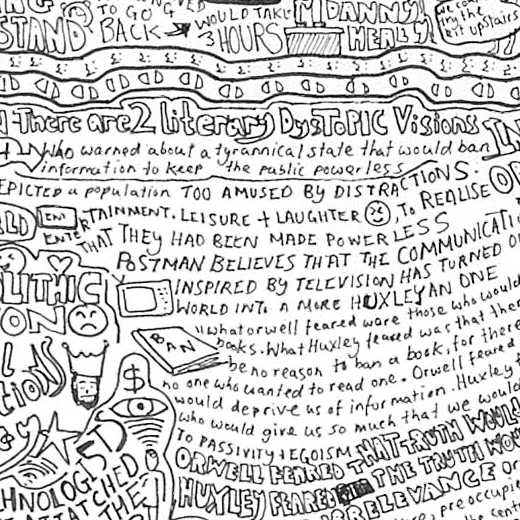 TO GO
BACK
WOULD TAKE
3 HOURS
STAND
DANNY
HEALY
try the
upstairs
There are 2 literary DysTOPIC Visions
Who warned about a tyrannical state that would ban
information to keep the public powerless
EPICTED a population TOO AMUSED BY DISTRACTIONS.
ENTERTAINMENT. LEISURE + LAUGHTER , To REALISE
THAT THEY HAD BEEN MADE POWERLESS
POSTMAN BELIEVES THAT THE COMMUNICATI
INSPIRED BY TELEVISION HAS TURNED O
WORLD INTO A MORE HUXLEYAN ONE
LITHIC
ON
"what orwell feared were those who would
BAN
books. What Huxley feared was that ther
be no reason to ban a book, for there
no one who wanted to read one. Orwell feared
would deprive us of information. Huxley
who would give us so much that we would
TO PASSIVITY + EGOISM
$
ORWELL FEARED THAT TRUTH WOUL
HUXLEY FEARED THE TRUTH WO
IRRELEVANCE
pre occupie
TECHNOLOG
ATTATCHED
THE